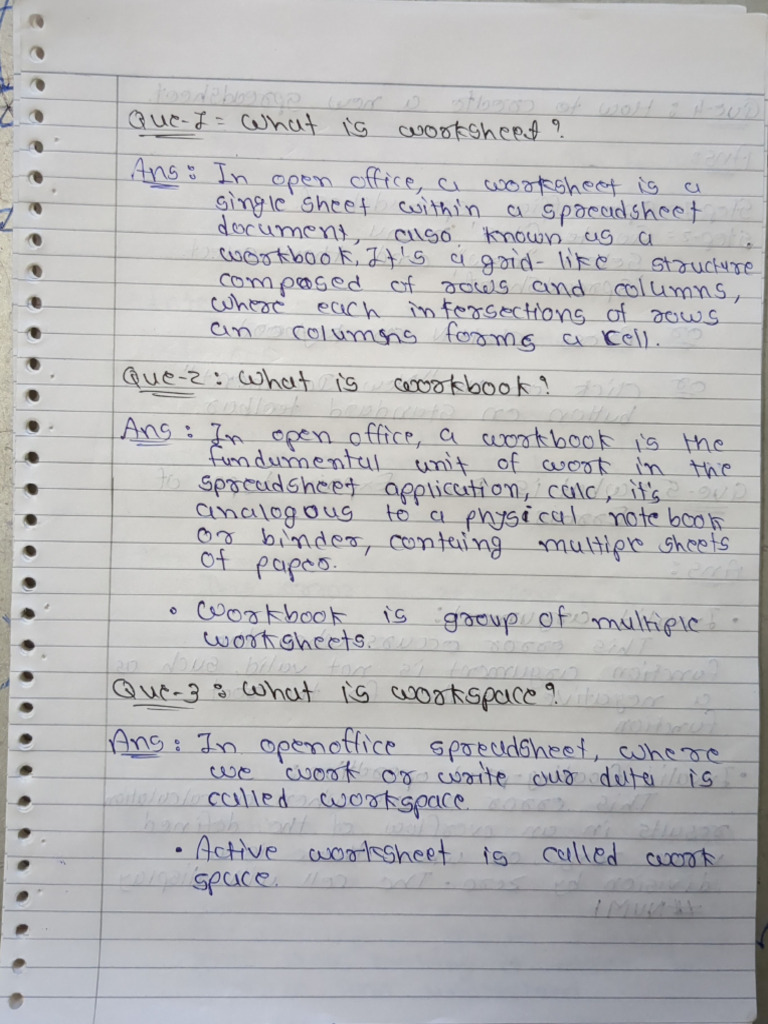 Que-1 = What is worksheet?
Ans : In open office, a worksheet is a
single sheet within a spreadsheet
document, also known as a
workbook, It's a grid-like structure
composed of rows and columns,
where each intersections of rows
an columsns forms a cell.
Que-2 : What is workbook?
Ans : In open office, a workbook is the
fundumental unit of work in the
spreadsheet application, calc, it's
analogous to a physical notebook
or binder, containg multiple sheets
of paper.
• Workbook is group of multiple
worksheets.
Que-3 : What is workspace?
Ans : In openoffice spreadsheet, where
we work or write our data is
called workspace.
• Active worksheet is called work
space.